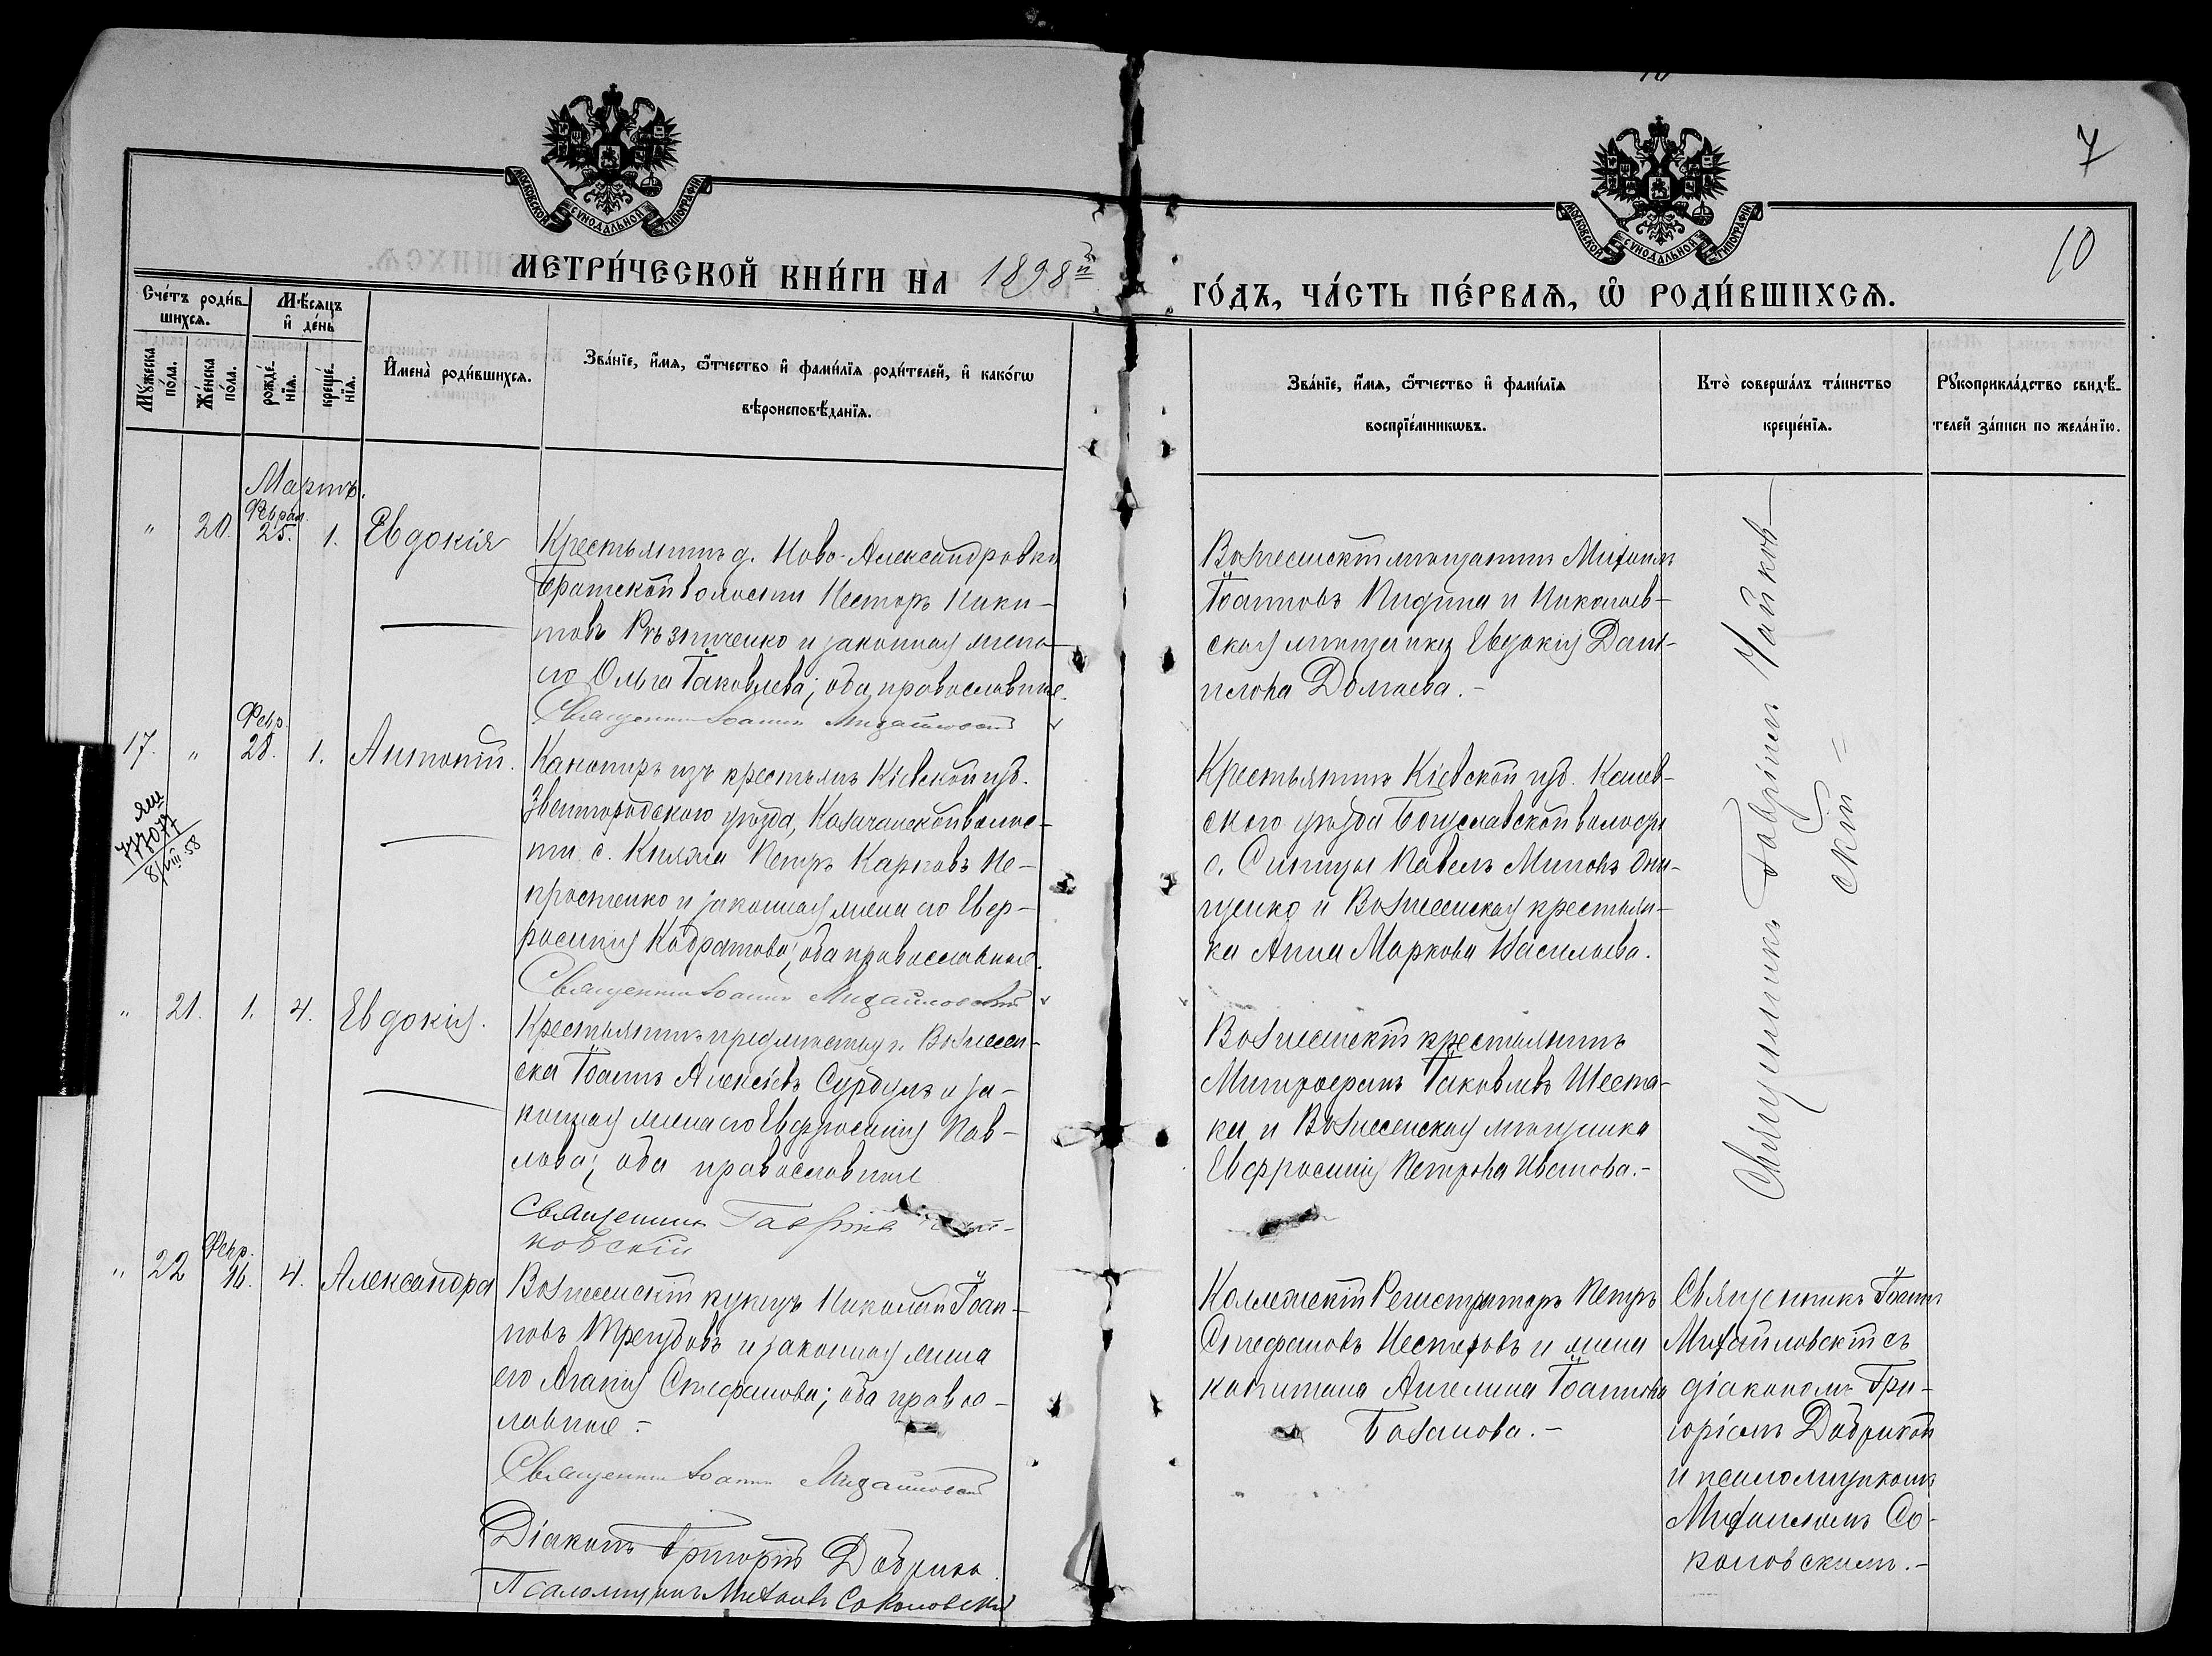 7
10
МОСКОВСКОЙ СѴНОДАЛЬНОЙ ТИПОГРАФІИ
МОСКОВСКОЙ СѴНОДАЛЬНОЙ ТИПОГРАФІИ
МЕТРИ́ЧЕСКОЙ КНИ́ГИ НА 1898й
ГО́ДЪ, ЧА́СТЬ ПЕ́РВАѦ, Ѽ РОДИ́ВШИХСѦ.
Сче́тъ роди́в-
шихсѧ.
Мꙋ́жеска по́ла.
Же́нска по́ла.
Мѣ́сяцъ и де́нь
рожде́-
нїѧ.
креще́-
нїѧ.
И҆мена̀ роди́вшихсѧ.
Зва́нїе, и҆́мѧ, ѻ҆́тчество и҆ фами́лїѧ роди́телей, и҆ како́гѡ
вѣроисповѣ́данїѧ.
Зва́нїе, и҆́мѧ, ѻ҆́тчество и҆ фами́лїѧ
воспрїе́мникѡвъ.
Кто̀ соверша́лъ та́инство
креще́нїѧ.
Рꙋкоприкла́дство свидѣ́-
телей за́писи по жела́нїю.
Мартъ.
" 20. Феврал. 25. 1. Евдокія
Крестьянинъ д. Ново-Александровки
Братской волости Несторъ Ники-
товъ Рѣзниченко и законная жена
его Ольга Іаковлева; оба православные.
Священникъ Іоаннъ Михайловскій
Вознесенскій мѣщанинъ Михаилъ
Іоанновъ Кидина и Николаев-
ская мѣщанка Евдокія Дані-
илова Долгаева.-
17. " Февр. 28. 1. Антоній.
77077
8/VIII 58
Канониръ изъ крестьянъ Кіевской губ.
Звенигородскаго уѣзда, Козачанской волос-
ти с. Княжа Петръ Карповъ Не-
простенко и законная жена его Евф-
росинія Кодратова; оба православные.
Священникъ Іоаннъ Михайловскій
Крестьянинъ Кіевской губ. Канев-
скаго уѣзда Богуславской волости
с. Синицы Павелъ Миновъ Они-
щенко и Вознесенская крестьян-
ка Анна Маркова Васильева.
" 21. 1. 4. Евдокія.
Крестьянинъ предмѣстья г. Вознесен-
ска Іоаннъ Алексіевъ Сурдулъ и за-
конная жена его Евфросинія Пав-
лова; оба православные
Священникъ Гавріилъ
ковскій
Вознесенскій крестьянинъ
Митрофанъ Іаковлевъ Шеста-
ка и Вознесенская мѣщанка
Евфросинія Петрова Иванова.-
Священникъ Гавріилъ Чайков-
скій =
" 22 Февр. 16. 4. Александра
Вознесенскій купецъ Николай Іоан-
новъ Трегубовъ и законная жена
его Агапія Стефанова; оба правос-
лавные.-
Священникъ Іоаннъ Михайловскій
Діаконъ Григорій Добрика.
Псаломщикъ Михаилъ Соколовскій
Коллежскій Регистраторъ Петръ
Стефановъ Нестеровъ и жена
капитана Ангелина Іоаннова
Базанова.-
Священникъ Іоаннъ
Михайловскій съ
діакономъ Гри-
горіемъ Добрикой
и псаломщикомъ
Михаиломъ Со-
коловскимъ.-